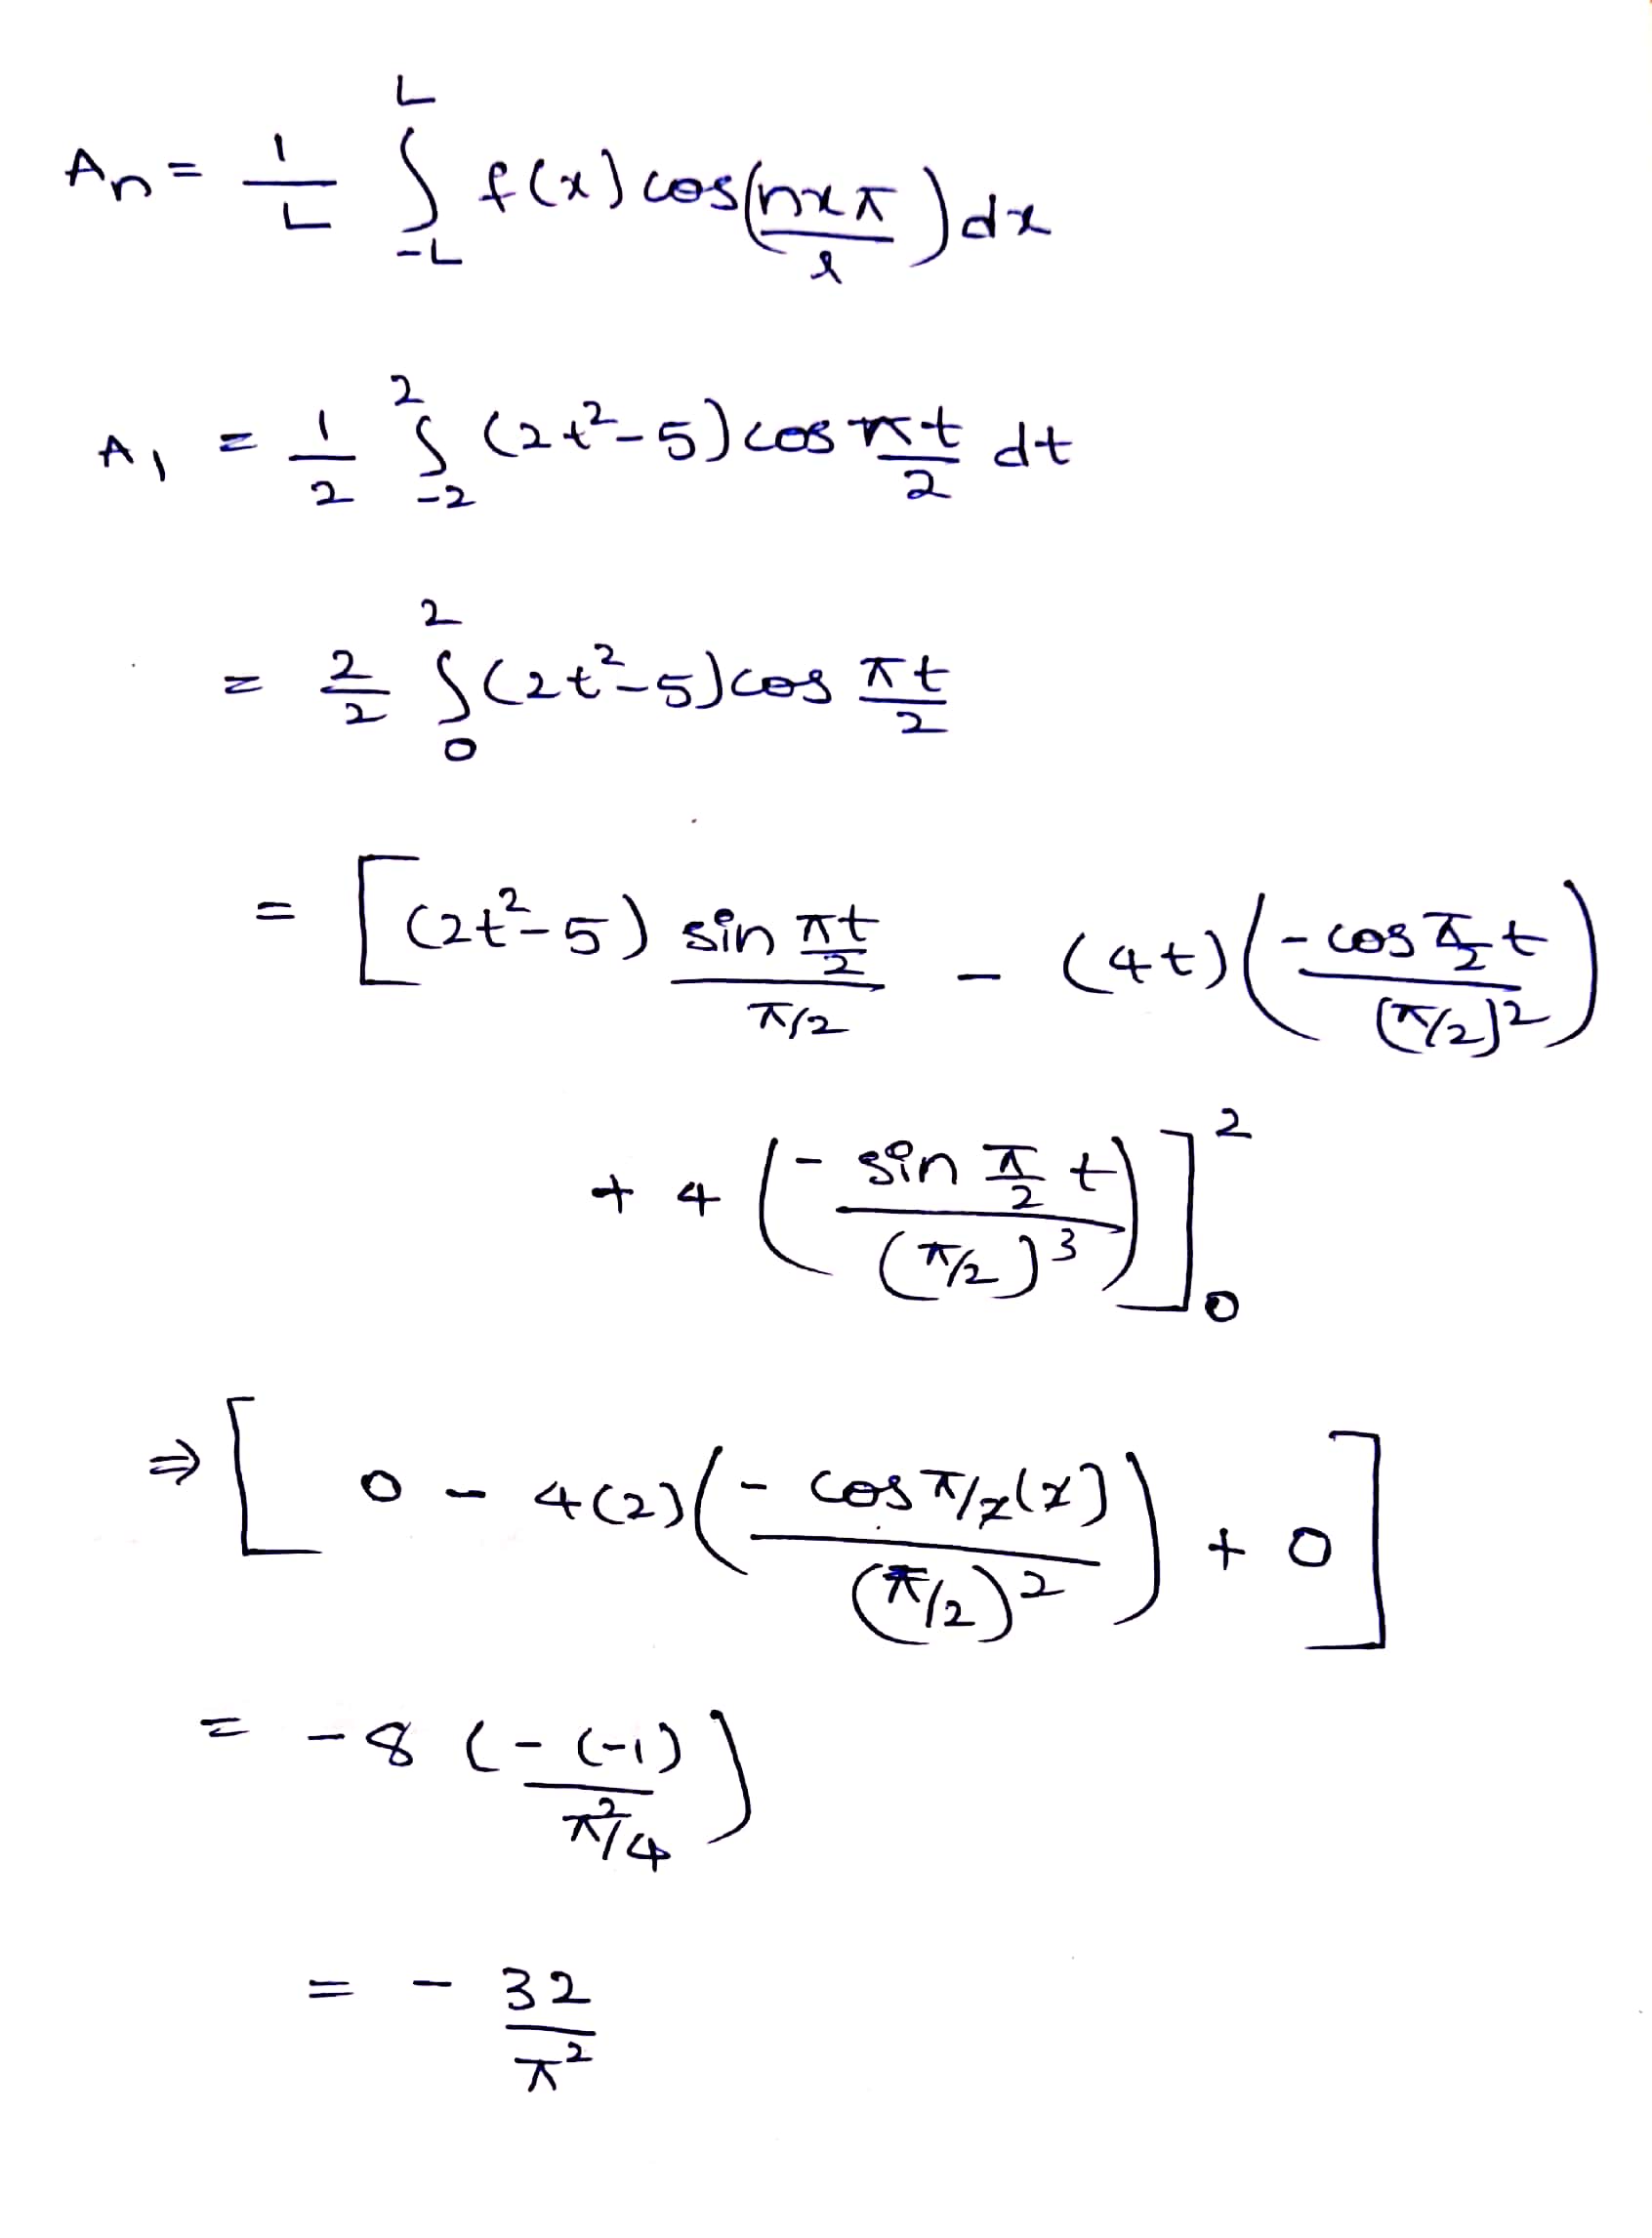 Aₙ = 1/L ∫_{-L}^{L} f(x) cos(nxπ/l) dx
A₁ = 1/2 ∫_{-2}^{2} (2t²-5) cos πt/2 dt
= 2/2 ∫_{0}^{2} (2t²-5) cos πt/2
= [ (2t²-5) (sin πt/2)/(π/2) - (4t) ( (-cos π/2 t)/(π/2)² )
+ 4 ( (-sin π/2 t)/(π/2)³ ) ]_{0}^{2}
⇒ [ 0 - 4(2) ( (-cos π/2(2))/(π/2)² ) + 0 ]
= -8 ( (-(-1))/(π²/4) )
= - 32/π²